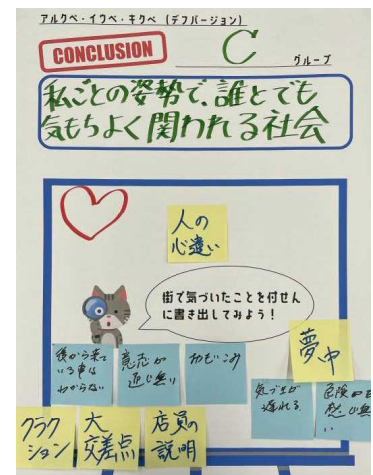 アルクベ・イワベ・キクベ (デフバージョン)
CONCLUSION
C グループ
私ごとの姿勢で、誰とでも
気もちよく関われる社会
人の
心遣い
街で気づいたことを付せん
に書き出してみよう！
後から来て
いる事は
わからない
意志が
通じ無い
夢中
気づきが
遅れる
危険 を
感じ無
い
クラク
ション
大
交差点
店員の
説明